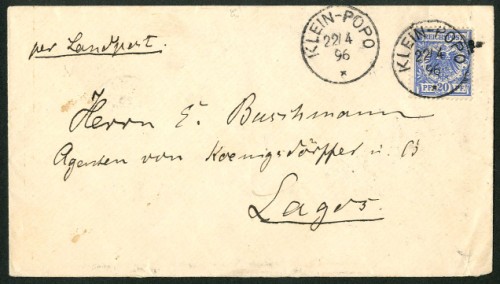 per Landpost.
KLEIN-POPO
22/4
96
*
KLEIN-POPO
22/4
96
*
REICHSPOST
PF 20 PF
Herrn E. Buschmann
Agenten von Koenigsdörffer u. Co
Lagos.